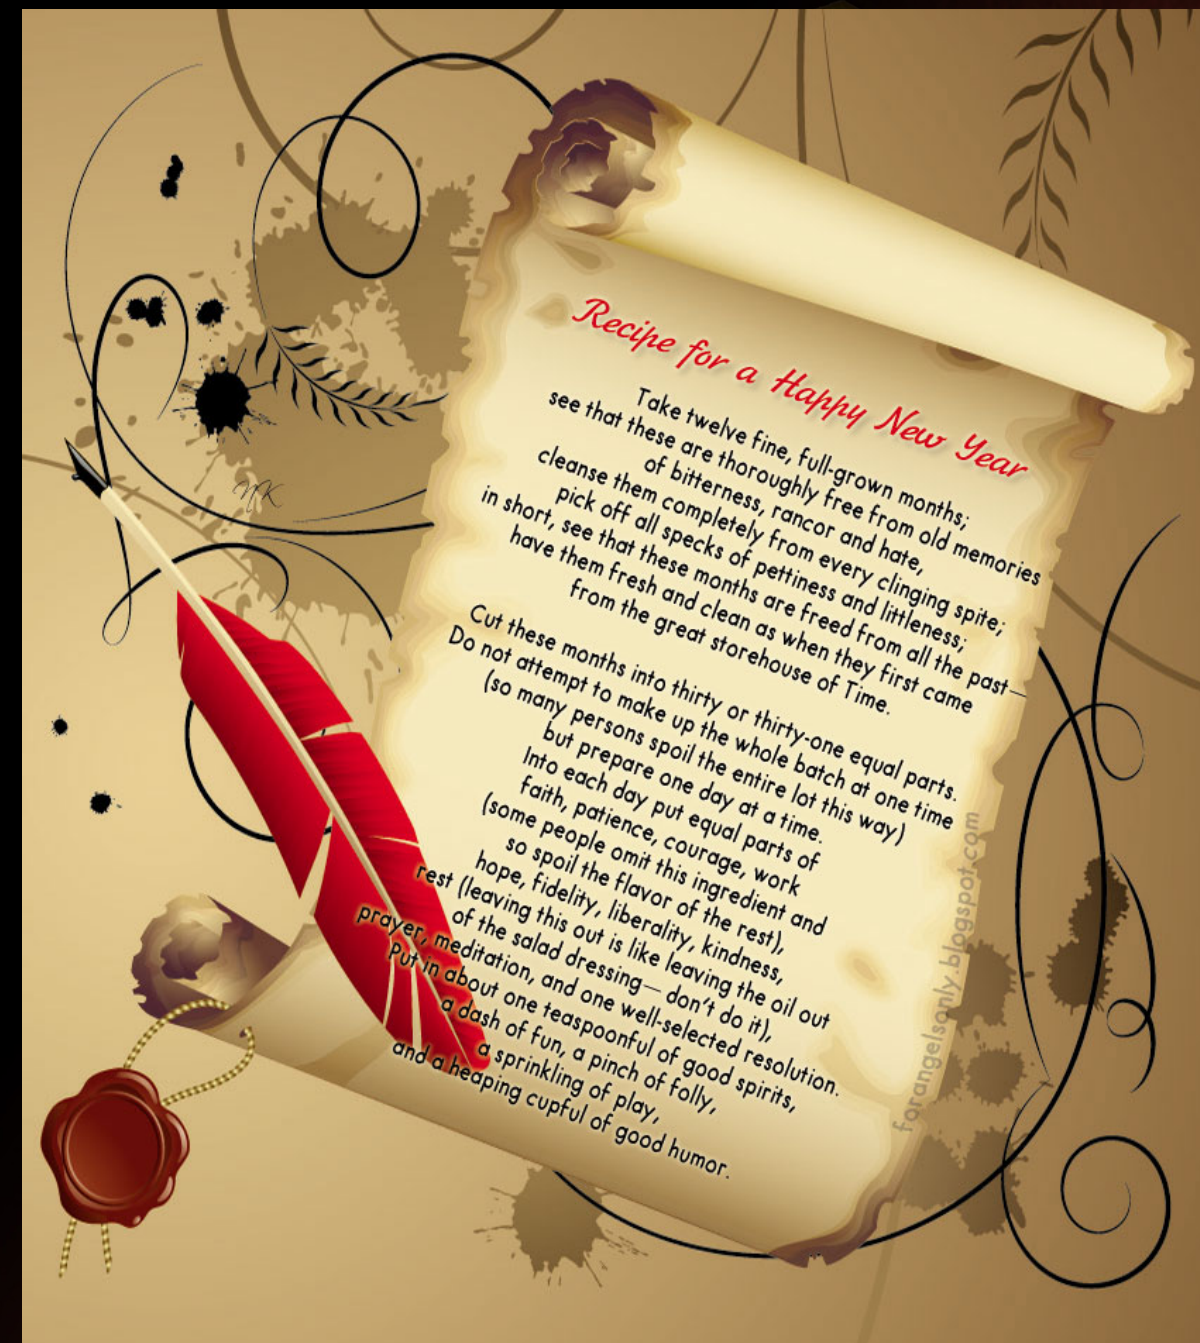 Recipe for a Happy New Year
Take twelve fine, full-grown months;
see that these are thoroughly free from old memories
of bitterness, rancor and hate,
cleanse them completely from every clinging spite;
pick off all specks of pettiness and littleness;
in short, see that these months are freed from all the past—
have them fresh and clean as when they first came
from the great storehouse of Time.
Cut these months into thirty or thirty-one equal parts.
Do not attempt to make up the whole batch at one time
(so many persons spoil the entire lot this way)
but prepare one day at a time.
Into each day put equal parts of
faith, patience, courage, work
(some people omit this ingredient and
so spoil the flavor of the rest),
hope, fidelity, liberality, kindness,
rest (leaving this out is like leaving the oil out
of the salad dressing— don't do it),
prayer, meditation, and one well-selected resolution.
Put in about one teaspoonful of good spirits,
a dash of fun, a pinch of folly,
a sprinkling of play,
and a heaping cupful of good humor.
forangelsonly.blogspot.com
NK